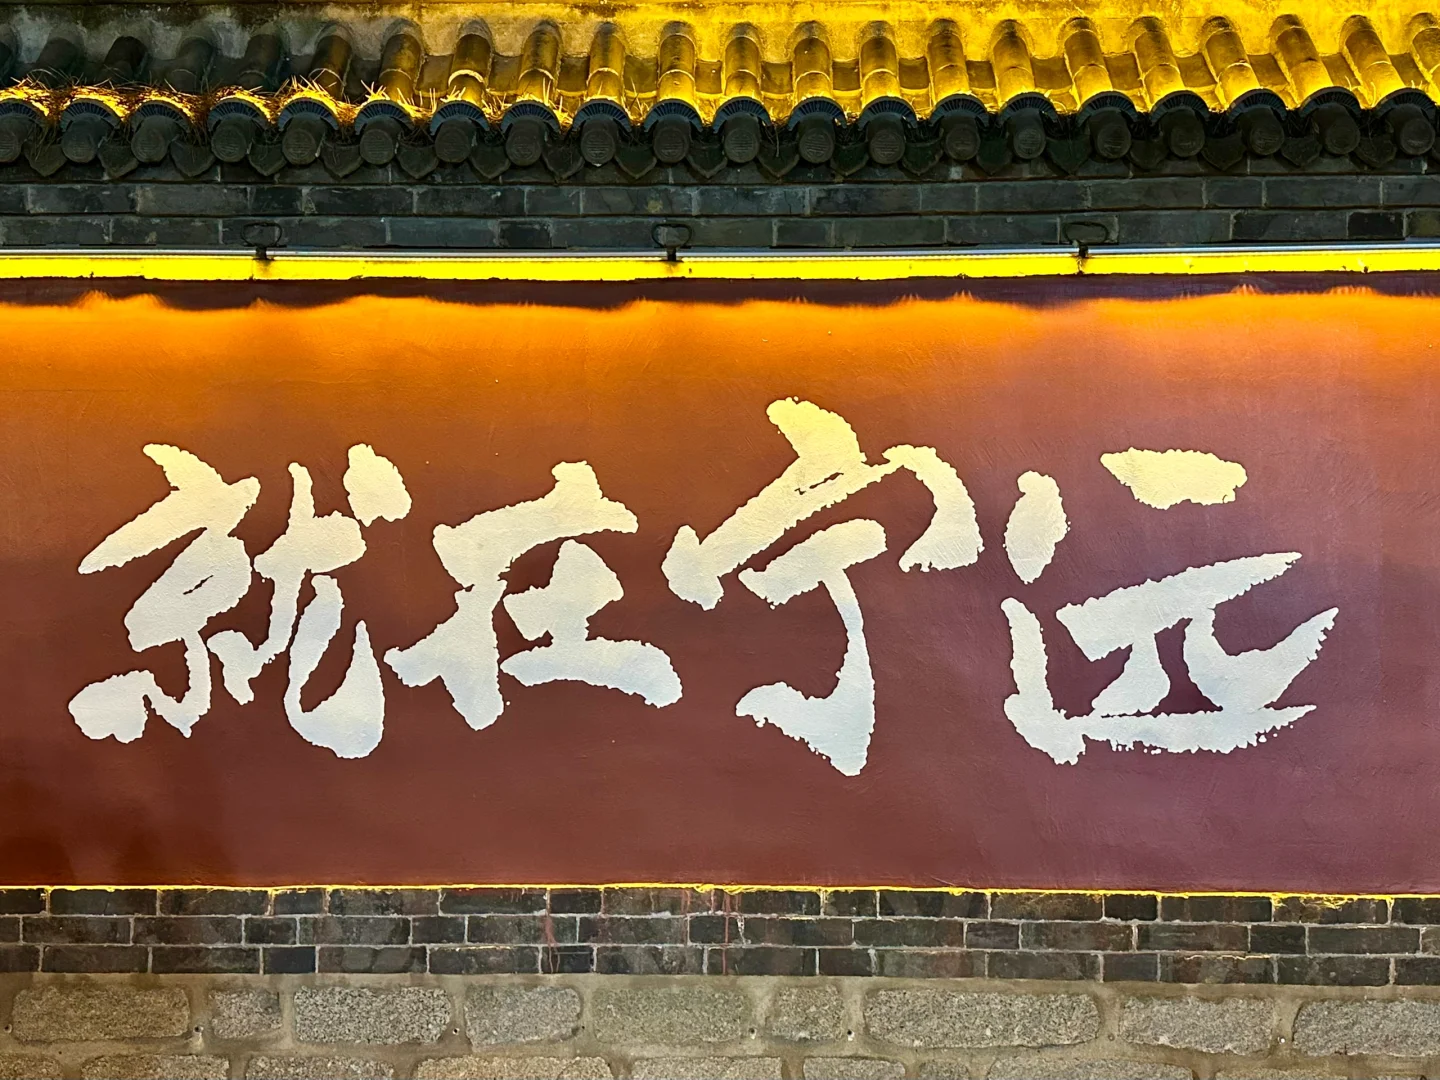 就在宁远